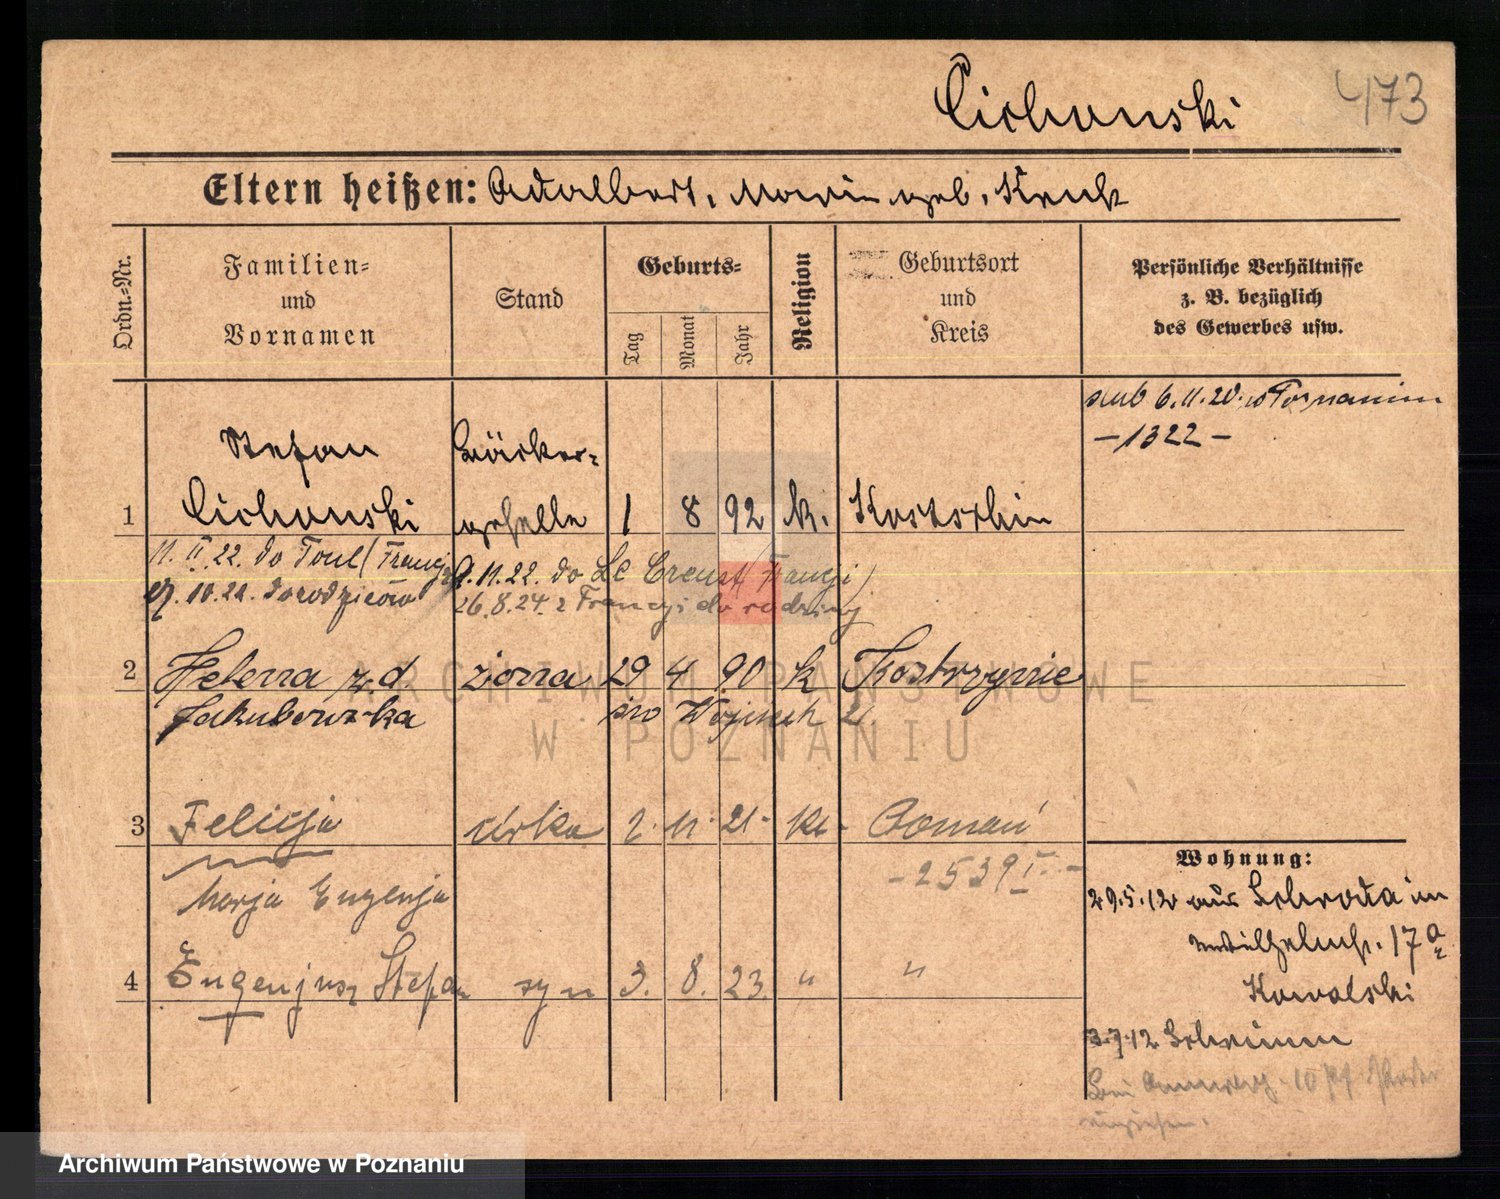 Cichanski 473
Eltern heißen: Adalbert, Maria geb. Kruk
Ordn.-Nr.
Familien-
und
Vornamen
Stand
Geburts-
Tag
Monat
Jahr
Religion
Geburtsort
und
Kreis
Persönliche Verhältnisse
z. B. bezüglich
des Gewerbes usw.
ślub 6.11.20. w Poznaniu
-1322-
Stefan Bäcker-
1 Cichanski geselle 1 8 92 k. Kostschin
11. II. 22. do Toul (Francj
27.10.22. do rodziców
9.11.22. do Le Creust (Francji)
26.8.24. z Francji do rodziny
2 Helena z.d. żona 29 4 90 k Kostrzynie
Jakubowska św Wojciech 2
3 Felicja córka 2. 11. 21. kt. Poznań
-2539 I.-
Marja Eugenja
4 Eugenjusz Stefan syn 3. 8. 23. " "
Wohnung:
29.5.12 aus Schroda in
Wilhelmstr. 17a
Kowalski
3.7.12 Schrimm
Bei 10
ARCHIWUM PAŃSTWOWE
W POZNANIU
Archiwum Państwowe w Poznaniu